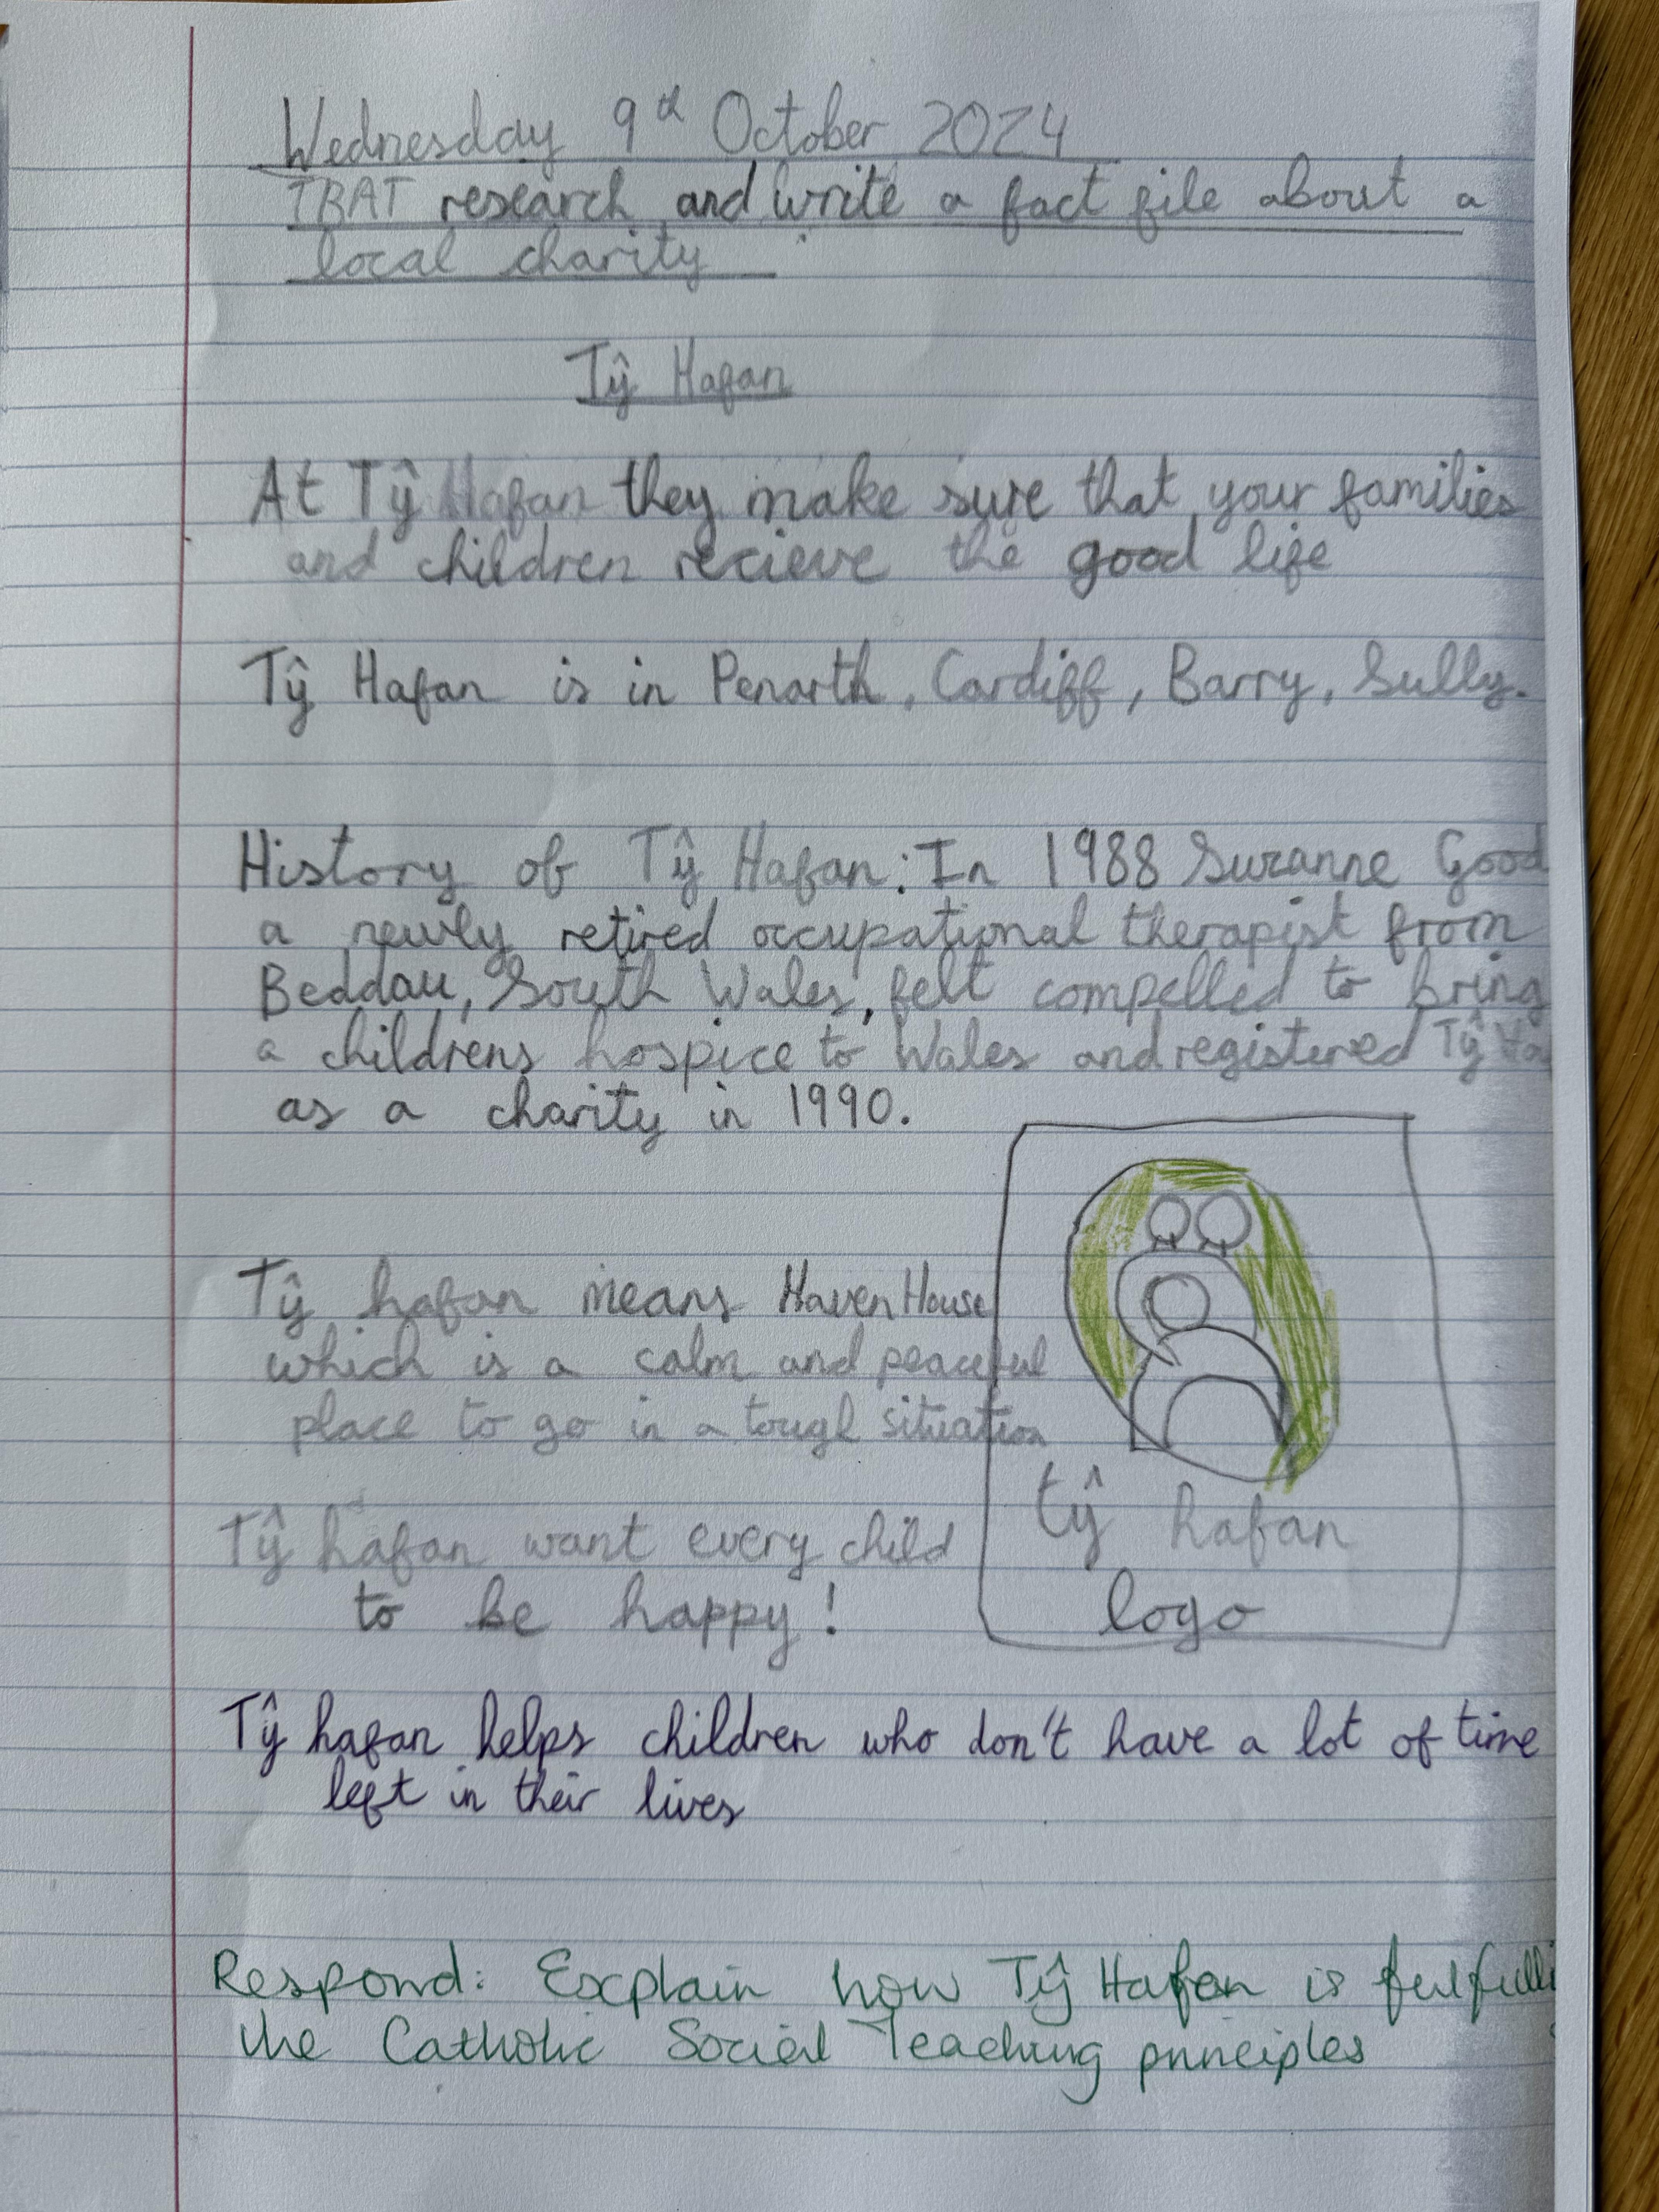 Wednesday 9th October 2024
TBAT research and write a fact file about a
local charity
Tŷ Hafan
At Tŷ Hafan they make sure that your families
and children recieve the good life
Tŷ Hafan is in Penarth, Cardiff, Barry, Sully.
History of Tŷ Hafan: In 1988 Suzanne Good
a newly retired occupational therapist from
Beddau, South Wales, felt compelled to bring
a childrens hospice to Wales and registered Tŷ Ha
as a charity in 1990.
Tŷ hafan means Haven House
which is a calm and peaceful
place to go in a tough situation
Tŷ hafan want every child
to be happy!
tŷ hafan
logo
Tŷ hafan helps children who don't have a lot of time
left in their lives
Respond: Explain how Tŷ Hafan is fulfilli
the Catholic Social Teaching principles